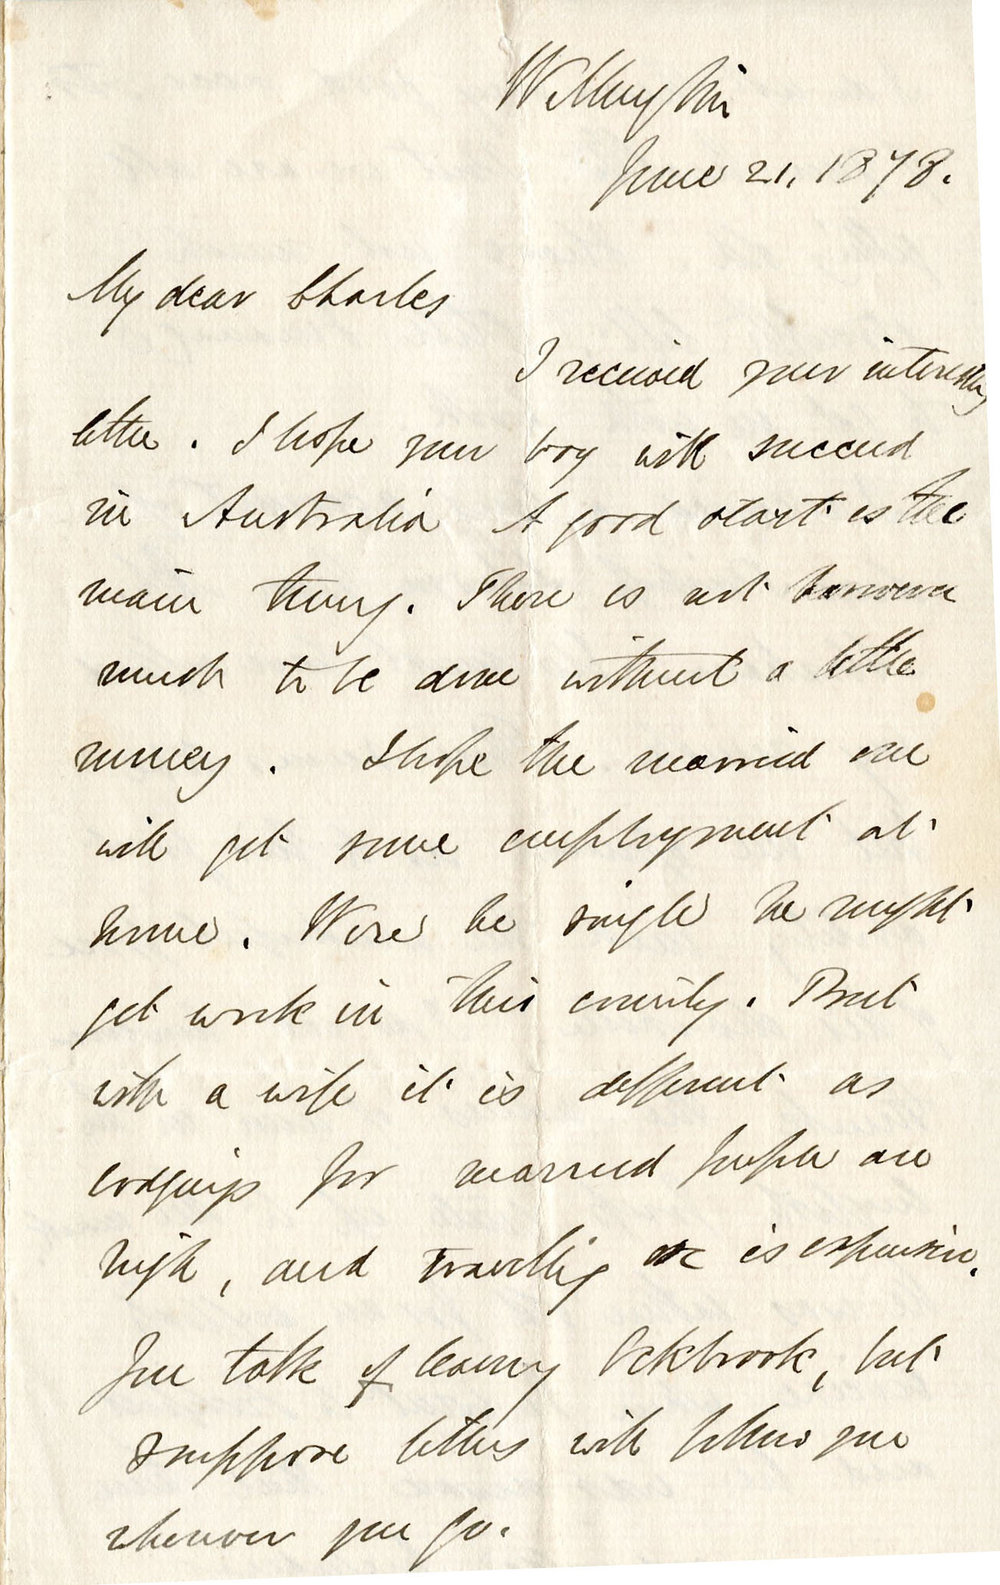 Wellington
June 21, 1878.
My dear Charles
I received your interesting
letter. I hope your boy will succeed
in Australia A good start is the
main thing. There is not however
much to be done without a little
money. I hope the married one
will get some employment at
home. Were he single he might
get work in this country. But
with a wife it is different as
lodgings for married people are
high, and travelling is expensive.
You talk of leaving Ockbrook, but
suppose letters will follow you
wherever you go.